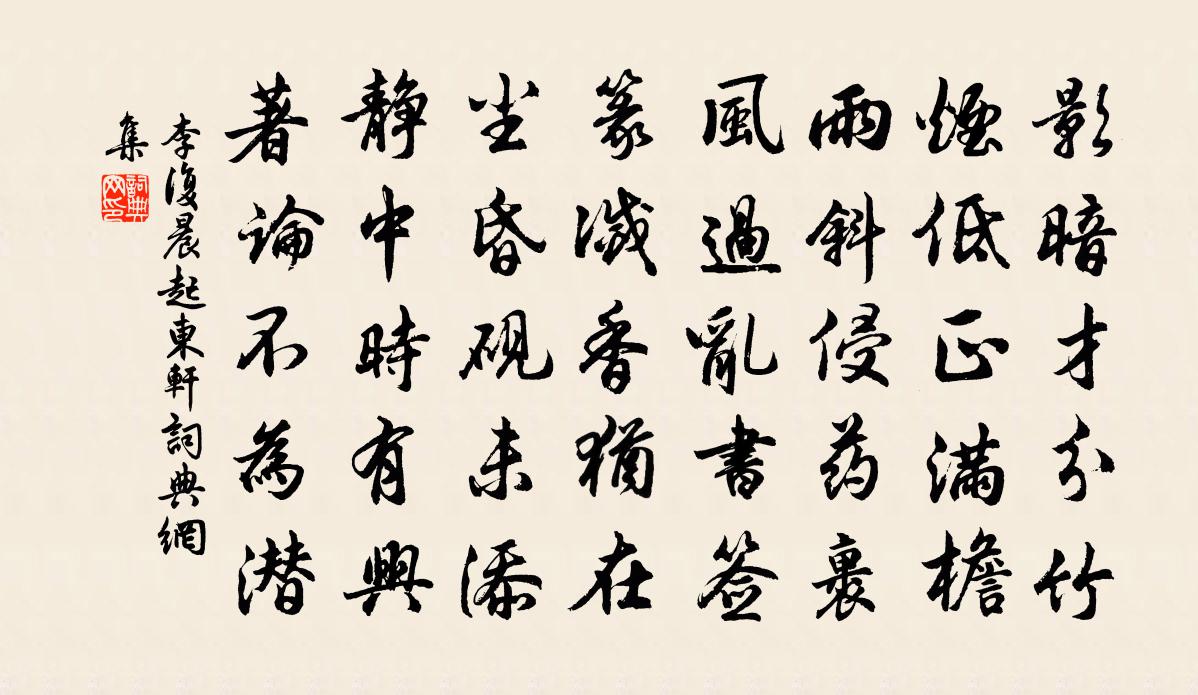 影暗才分竹
煙低正滿檐
雨斜侵药裹
風過亂書签
篆滅香猶在
尘昏硯未添
靜中時有興
著論不為潜
李復晨起東軒詞典網
集
詞典
网印